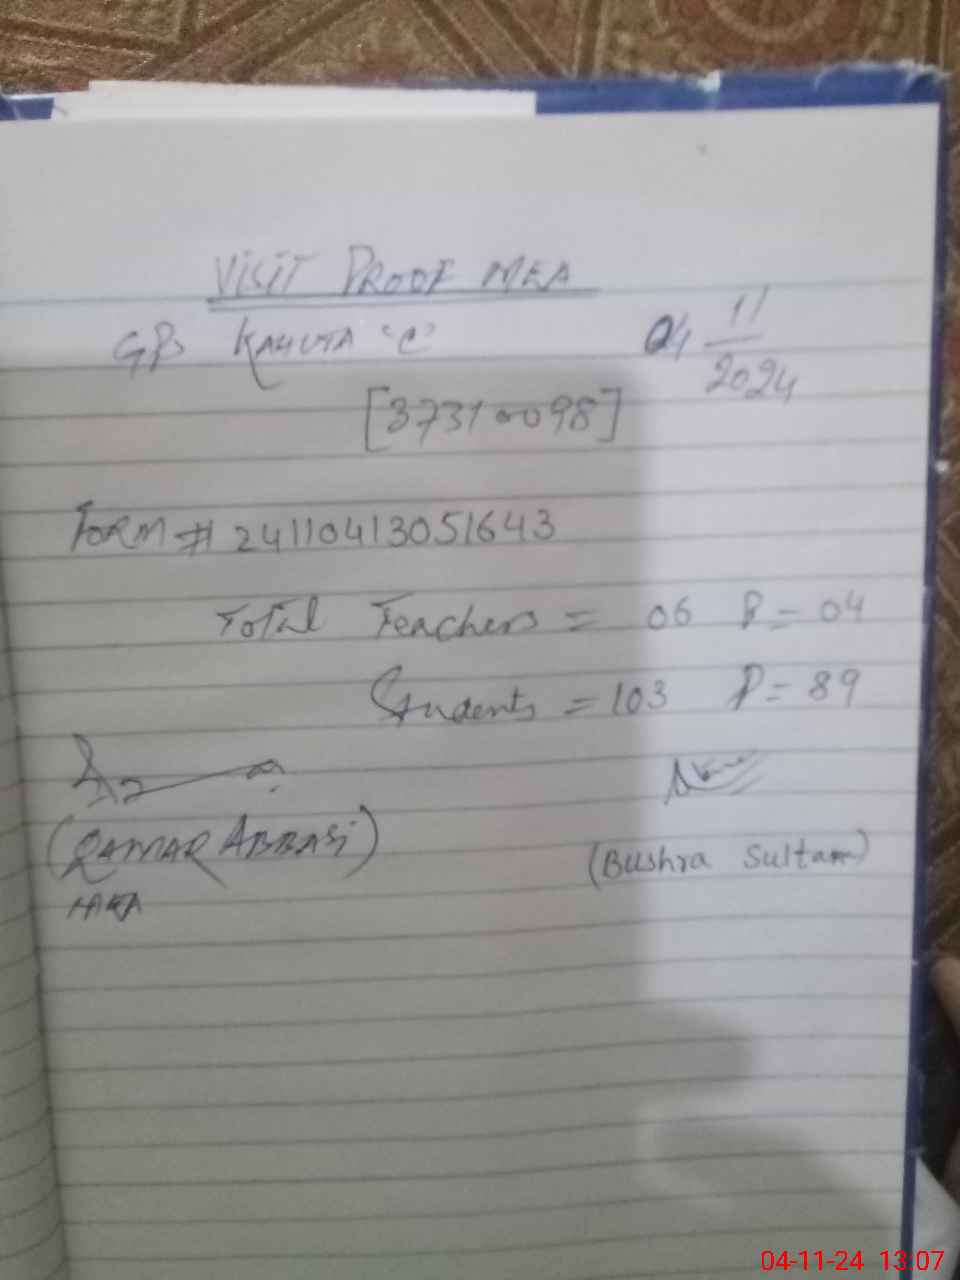 VISIT PROOF MEA
GPS KAHUTA "C" 04/11/2024
[37310098]
FORM # 24110413051643
Total Teachers = 06 P = 04
Students = 103 P = 89
(QAMAR ABBASI)
(Bushra Sultana)
MEA
04-11-24 13:07